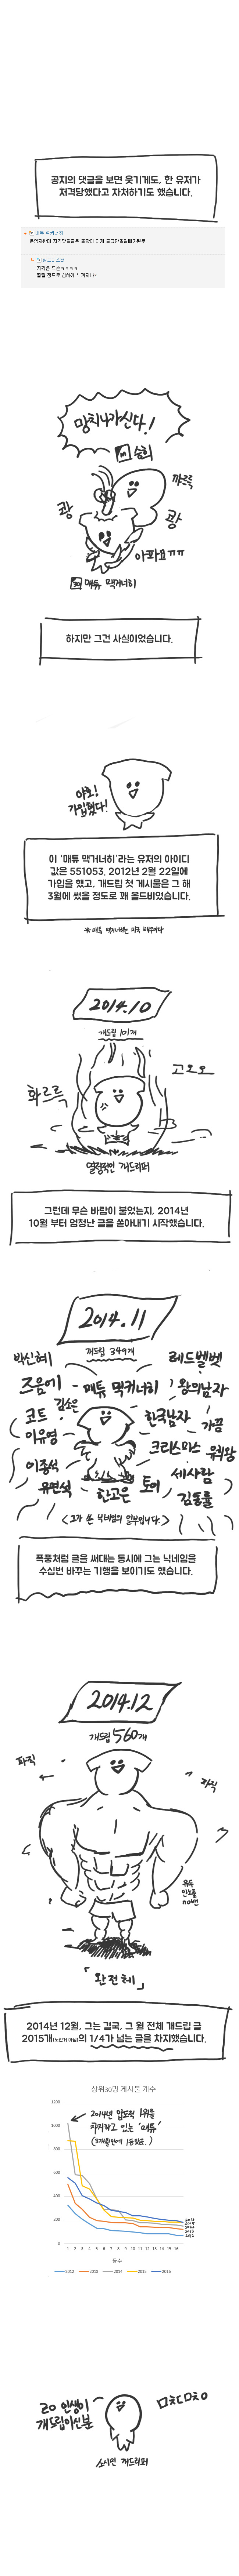 공지의 댓글을 보면 웃기게도, 한 유저가
저격당했다고 자처하기도 했습니다.
매튜 맥커너히
운영자한테 저격맞을줄은 몰랐어 이제 글그만올릴때가된듯
골드미스터
저격은 무슨ㅋㅋㅋㅋ
찔릴 정도로 심하게 느껴지나?
망치나가신다!
승희
꺄르륵
쾅
쾅
아파요ㅠㅠ
30 매튜 맥커너히
하지만 그건 사실이었습니다.
야호!
가입했다!
이 '매튜 맥거너히'라는 유저의 아이디
값은 551053. 2012년 2월 22일에
가입을 했고, 개드립 첫 게시물은 그 해
3월에 썼을 정도로 꽤 올드비였습니다.
※ 매튜 맥커너히는 미국 배우이다
2014.10
개드립 101개
화르륵
고오오
열정적인 개드리퍼
그런데 무슨 바람이 불었는지, 2014년
10월 부터 엄청난 글을 쏟아내기 시작했습니다.
2014.11
개드립 349개
박신혜
레드벨벳
즈음에
매튜 맥커너히
왕의남자
김소은
코트
한국남자
가끔
이유영
크리스마스
워위왕
이종석
세사람
유연석
한고은
토이
김동률
<그가 쓴 닉네임의 일부입니다.>
폭풍처럼 글을 써대는 동시에 그는 닉네임을
수십번 바꾸는 기행을 보이기도 했습니다.
2014.12
개드립 560개
파직
파직
유두
인노출
no밴
「완전체」
2014년 12월, 그는 결국, 그 월 전체 개드립 글
2015개(노린거 아님)의 1/4가 넘는 글을 차지했습니다.
상위30명 게시물 개수
1200
1000
800
600
400
200
0
2014년 압도적 1위를
차지하고 있는 '매튜'
(3개월만에 1등했음.)
2016
2015
2014
2013
2012
1 2 3 4 5 6 7 8 9 10 11 12 13 14 15 16
등수
2012 2013 2014 2015 2016
20 인생이
개드립이신분
ㅁㅊㄷㅁㅊㅇ
소시민 개드리퍼